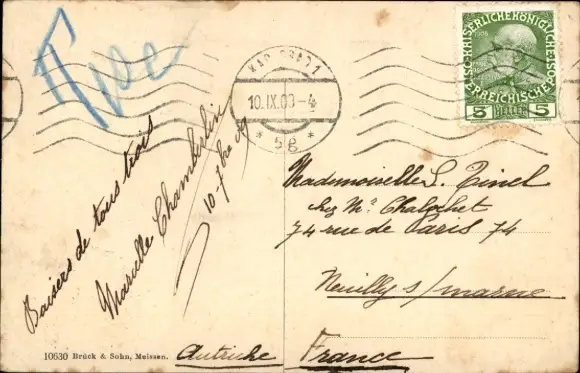 Karlsbad 1
10.IX.09-4
* 5g *
KAISERLICHE KÖNIGLICHE ÖSTERREICHISCHE POST
1908
5 HELLER 5
Baisers de tous trois
Marcelle Chamberlin
10-7bre 09
Mademoiselle S. Tinel
chez Mr.
74 rue de Paris 74
Neuilly s/marne
Autriche France
10630 Brück & Sohn, Meissen.